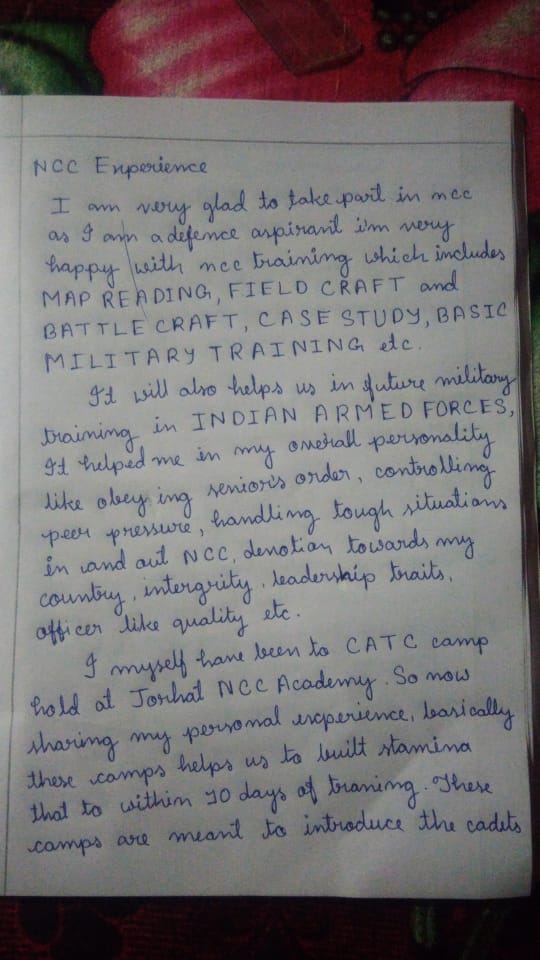 NCC Experience
I am very glad to take part in ncc
as I am a defence aspirant i'm very
happy with ncc training which includes
MAP READING, FIELD CRAFT and
BATTLE CRAFT, CASE STUDY, BASIC
MILITARY TRAINING etc.
It will also helps us in future military
training in INDIAN ARMED FORCES,
It helped me in my overall personality
like obey ing senior's order, controlling
peer pressure, handling tough situations
in and out NCC, denotion towards my
country, intergrity, leadership traits,
officer like quality etc.
I myself have been to CATC camp
hold at Jorhat NCC Academy. So now
sharing my personal experience, basically
these camps helps us to built stamina
that to within 10 days of traning. These
camps are meant to introduce the cadets